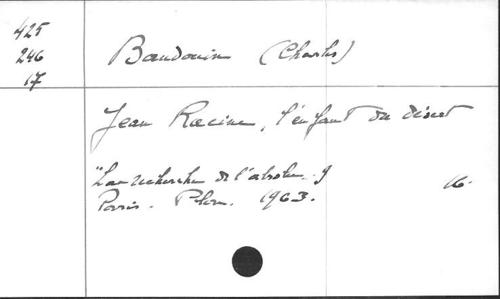 425
246
17
Baudouin (Charles)
Jean Racine, l'enfant du désert
"La recherche de l'absolu. 9
Paris. Plon. 1963. 16.